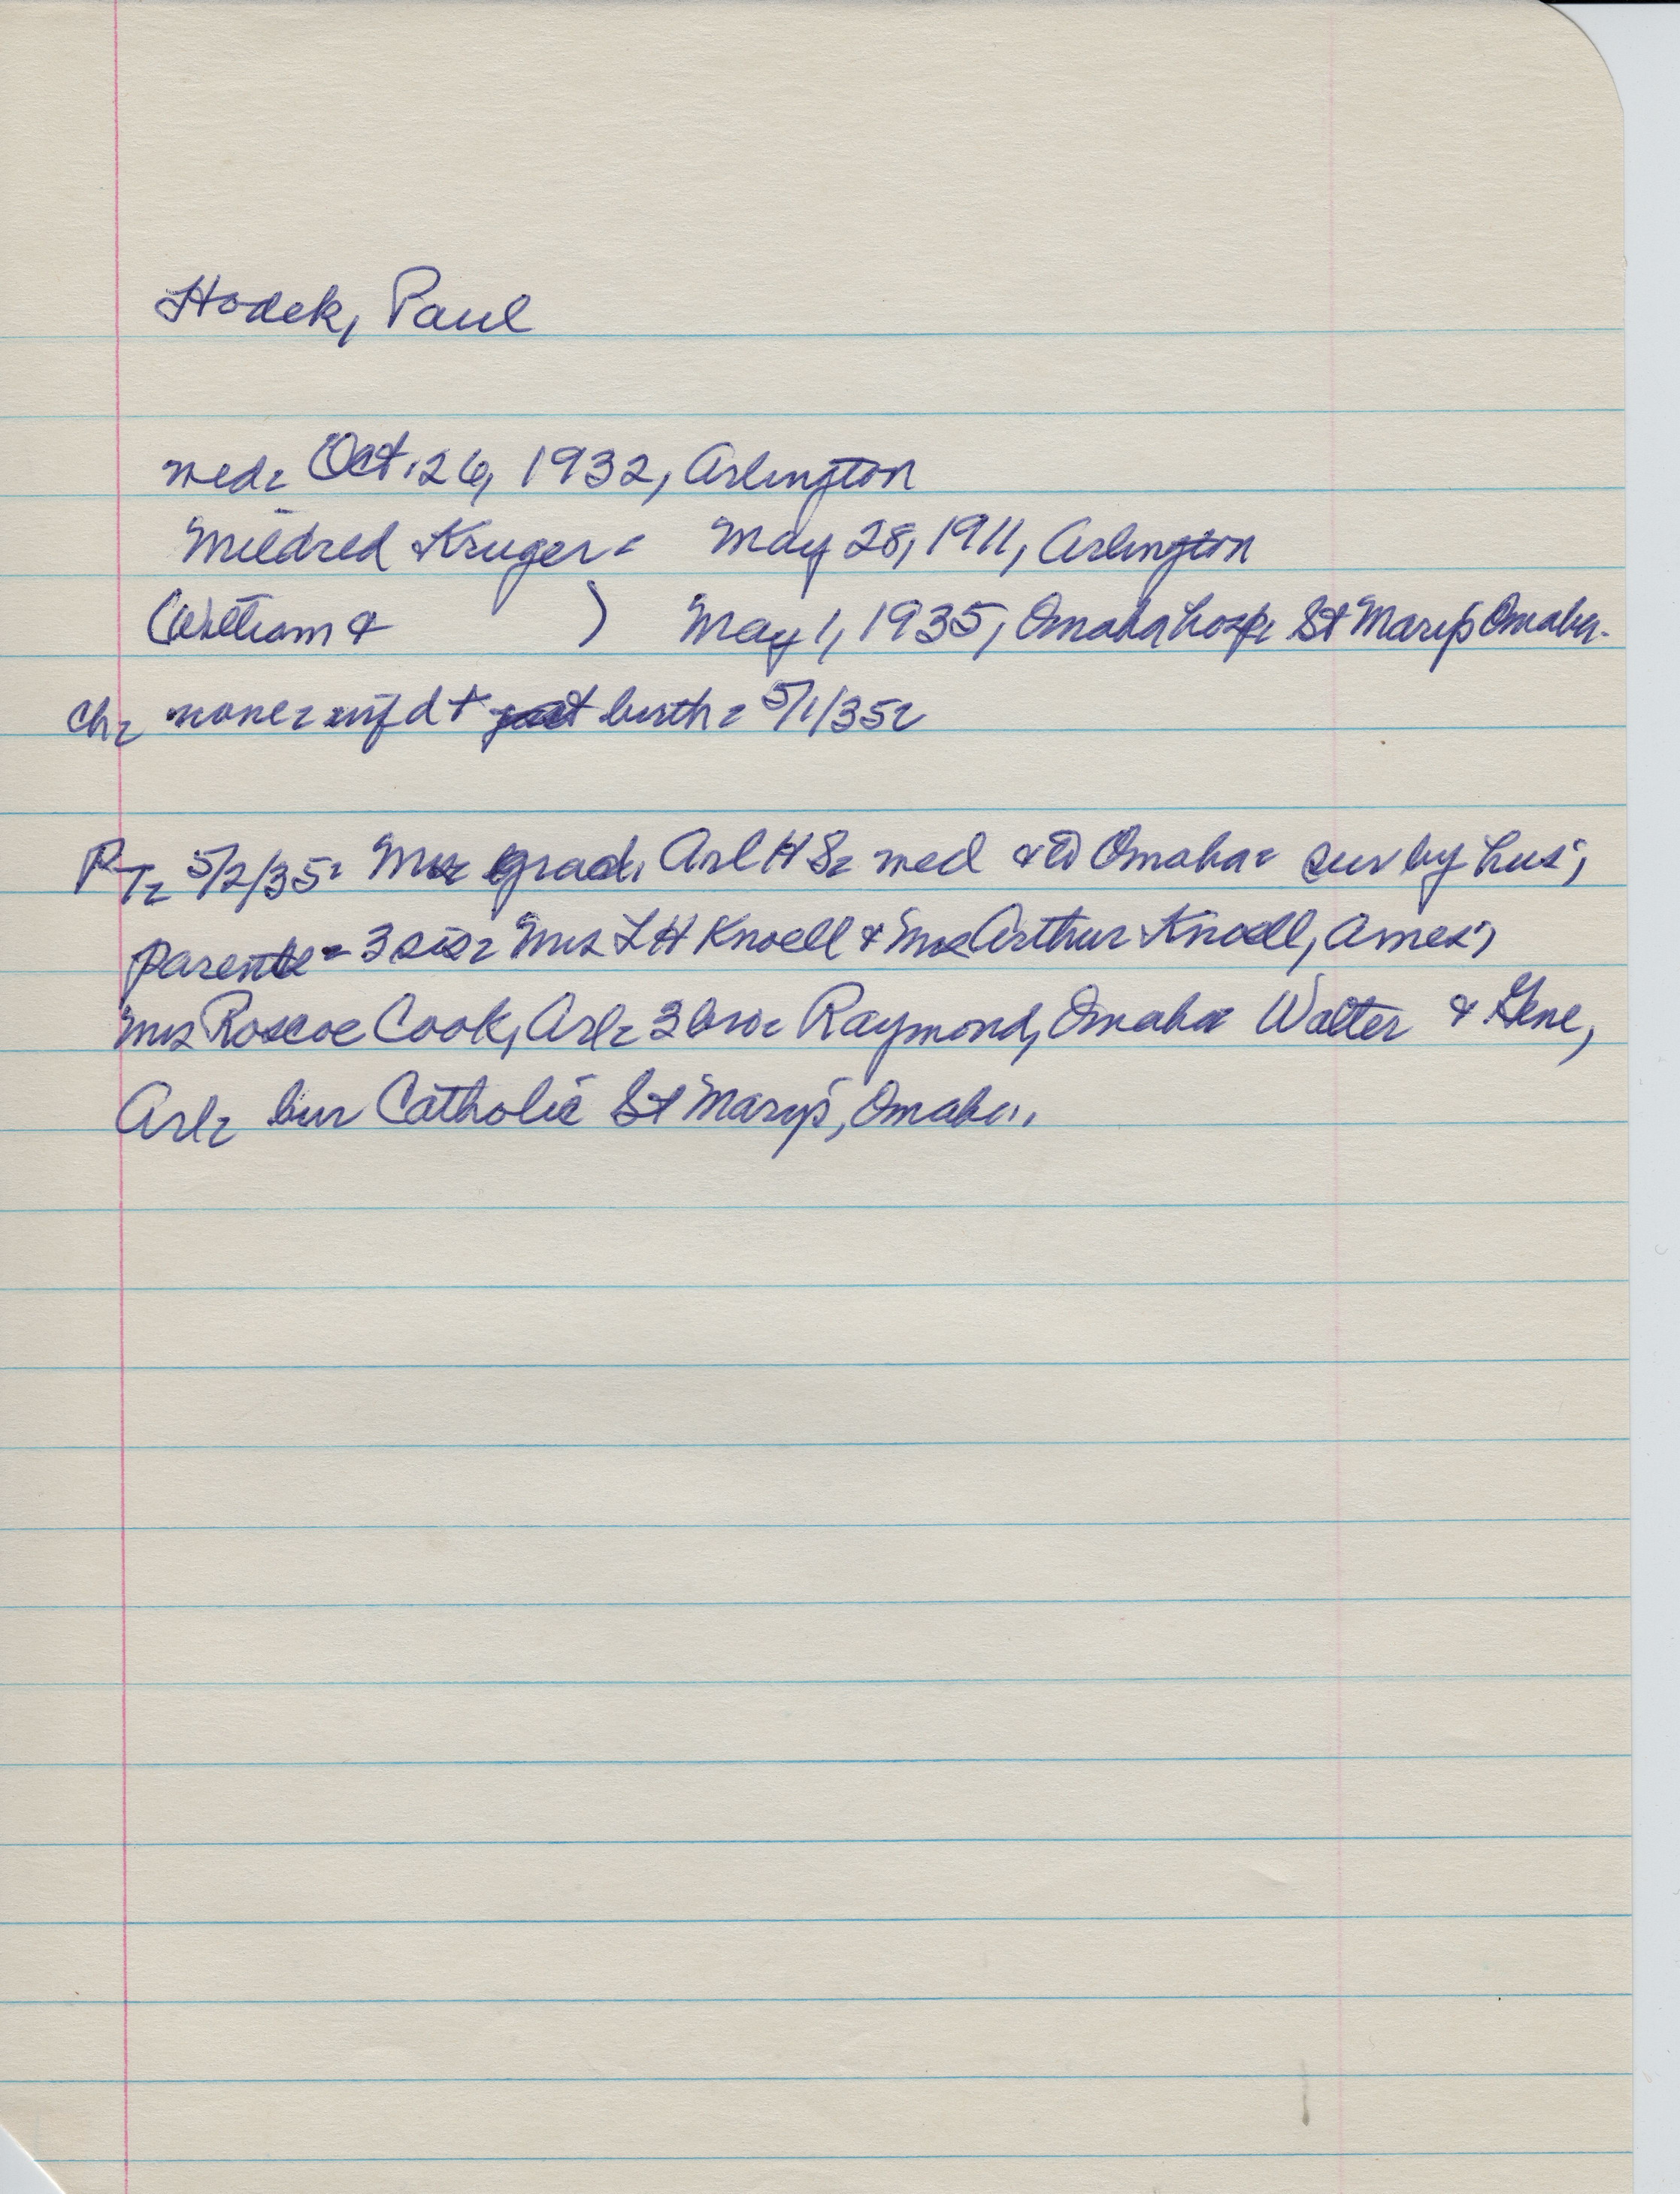 Hodek, Paul
med: Oct. 26, 1932, Arlington
Mildred Kruger: May 28, 1911, Arlington
(William & ) May 1, 1935, Omaha hosp: St Mary's Omaha.
ch: none: inf d + birth: 5/1/35:
PT: 5/2/35: grad. Arl H S: med Omaha: sur by hus;
parents: 3 sis: Mrs L H Knoell & Mrs Arthur Knoell, Ames;
Mrs Roscoe Cook, Arl: 3 bro: Raymond, Omaha Walter & Gene,
Arl: bur Catholic St Mary's, Omaha.